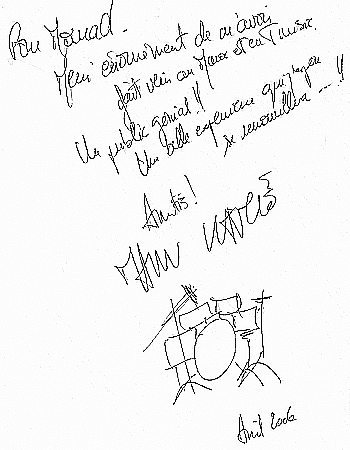 Pour Mourad.
Merci énormément de m'avoir
fait venir au Maroc et en Tunisie.
Un public génial !!
Une belle expérience qui j'espère
se renouvellera --- !!
Amitiés !
Avril 2006